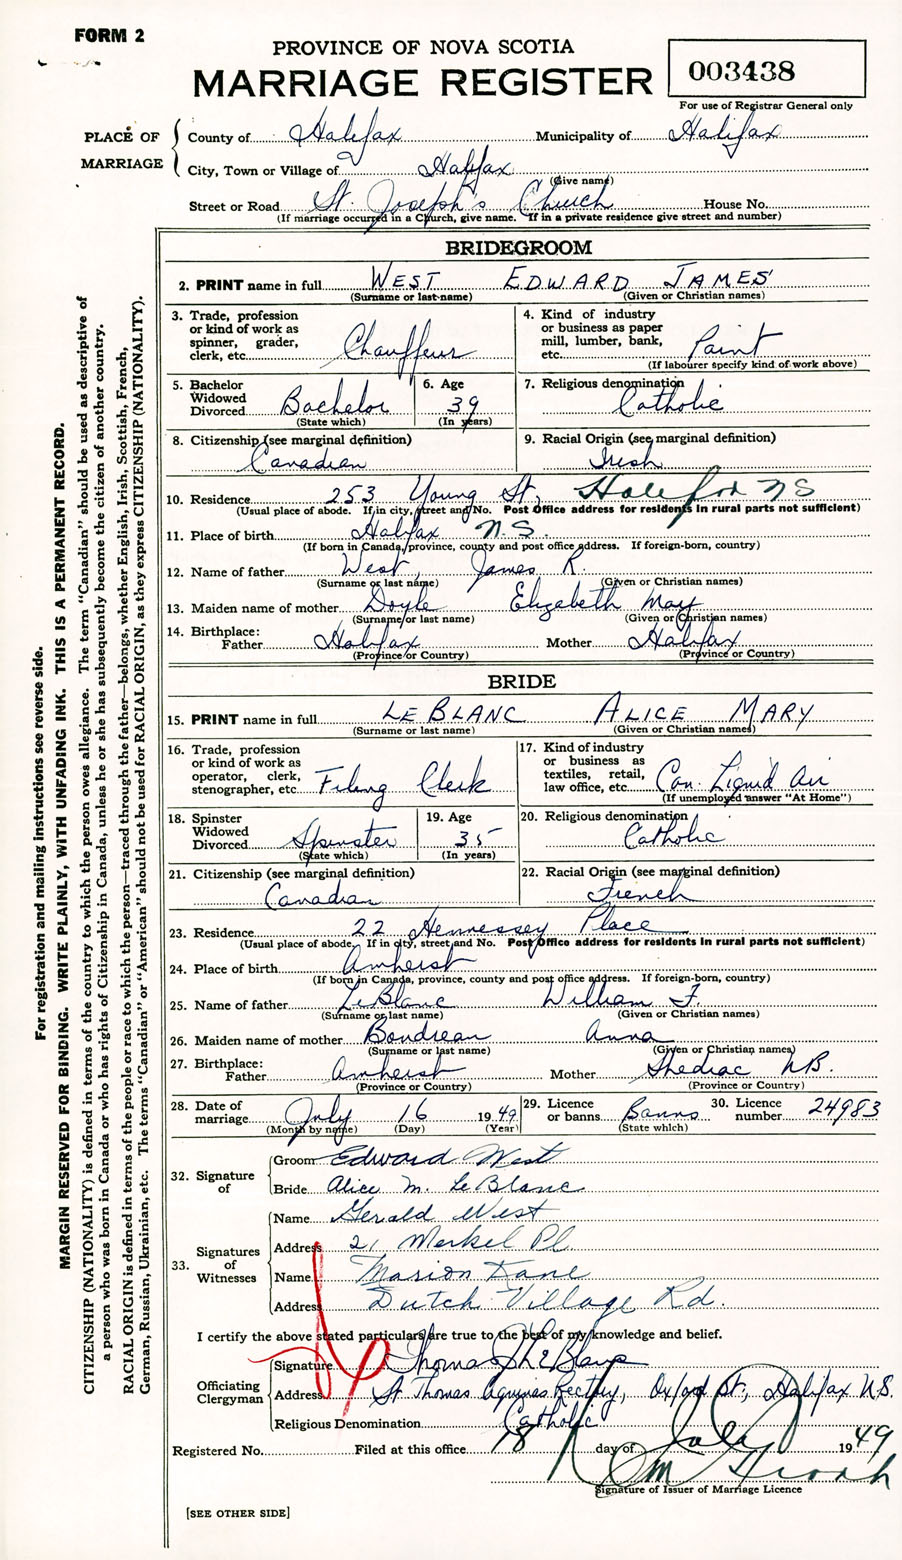 FORM 2
PROVINCE OF NOVA SCOTIA
MARRIAGE REGISTER
003438
For use of Registrar General only
PLACE OF MARRIAGE
County of Halifax Municipality of Halifax
City, Town or Village of Halifax
(Give name)
Street or Road St. Joseph's Church House No.
(If marriage occurred in a Church, give name. If in a private residence give street and number)
BRIDEGROOM
2. PRINT name in full WEST EDWARD JAMES
(Surname or last name) (Given or Christian names)
3. Trade, profession or kind of work as spinner, grader, clerk, etc. Chauffeur
4. Kind of industry or business as paper mill, lumber, bank, etc. Paint
(If labourer specify kind of work above)
5. Bachelor Widowed Divorced Bachelor
(State which)
6. Age 39
(In years)
7. Religious denomination Catholic
8. Citizenship (see marginal definition) Canadian
9. Racial Origin (see marginal definition) Irish
10. Residence 253 Young St, Halifax NS
(Usual place of abode. If in city, street and No. Post Office address for residents in rural parts not sufficient)
11. Place of birth Halifax N.S.
(If born in Canada, province, county and post office address. If foreign-born, country)
12. Name of father West, James R.
(Surname or last name) (Given or Christian names)
13. Maiden name of mother Doyle Elizabeth May
(Surname or last name) (Given or Christian names)
14. Birthplace: Father Halifax Mother Halifax
(Province or Country) (Province or Country)
BRIDE
15. PRINT name in full LEBLANC ALICE MARY
(Surname or last name) (Given or Christian names)
16. Trade, profession or kind of work as operator, clerk, stenographer, etc. Filing Clerk
17. Kind of industry or business as textiles, retail, law office, etc. Can. Liquid Air
(If unemployed answer "At Home")
18. Spinster Widowed Divorced Spinster
(State which)
19. Age 35
(In years)
20. Religious denomination Catholic
21. Citizenship (see marginal definition) Canadian
22. Racial Origin (see marginal definition) French
23. Residence 22 Hennessey Place
(Usual place of abode. If in city, street and No. Post Office address for residents in rural parts not sufficient)
24. Place of birth Amherst
(If born in Canada, province, county and post office address. If foreign-born, country)
25. Name of father LeBlanc William F.
(Surname or last name) (Given or Christian names)
26. Maiden name of mother Boudreau Anna
(Surname or last name) (Given or Christian names)
27. Birthplace: Father Amherst Mother Shediac NB.
(Province or Country) (Province or Country)
28. Date of marriage July 16 1949
(Month by name) (Day) (Year)
29. Licence or banns Banns
(State which)
30. Licence number 24983
32. Signature of
Groom Edward West
Bride Alice M. LeBlanc
33. Signatures of Witnesses
Name Gerald West
Address 21 Merkel Pl
Name Marion Kane
Address Dutch Village Rd.
I certify the above stated particulars are true to the best of my knowledge and belief.
Officiating Clergyman
Signature Thomas J LeBlanc
Address St Thomas Aquinas Rectory, Oxford St, Halifax N.S.
Religious Denomination Catholic
Registered No. Filed at this office 18 day of July 1949
Signature of Issuer of Marriage Licence
[SEE OTHER SIDE]
For registration and mailing instructions see reverse side.
MARGIN RESERVED FOR BINDING. WRITE PLAINLY, WITH UNFADING INK. THIS IS A PERMANENT RECORD.
CITIZENSHIP (NATIONALITY) is defined in terms of the country to which the person owes allegiance. The term "Canadian" should be used as descriptive of
a person who was born in Canada or who has rights of Citizenship in Canada, unless he or she has subsequently become the citizen of another country.
RACIAL ORIGIN is defined in terms of the people or race to which the person—traced through the father—belongs, whether English, Irish, Scottish, French,
German, Russian, Ukrainian, etc. The terms "Canadian" or "American" should not be used for RACIAL ORIGIN, as they express CITIZENSHIP (NATIONALITY).